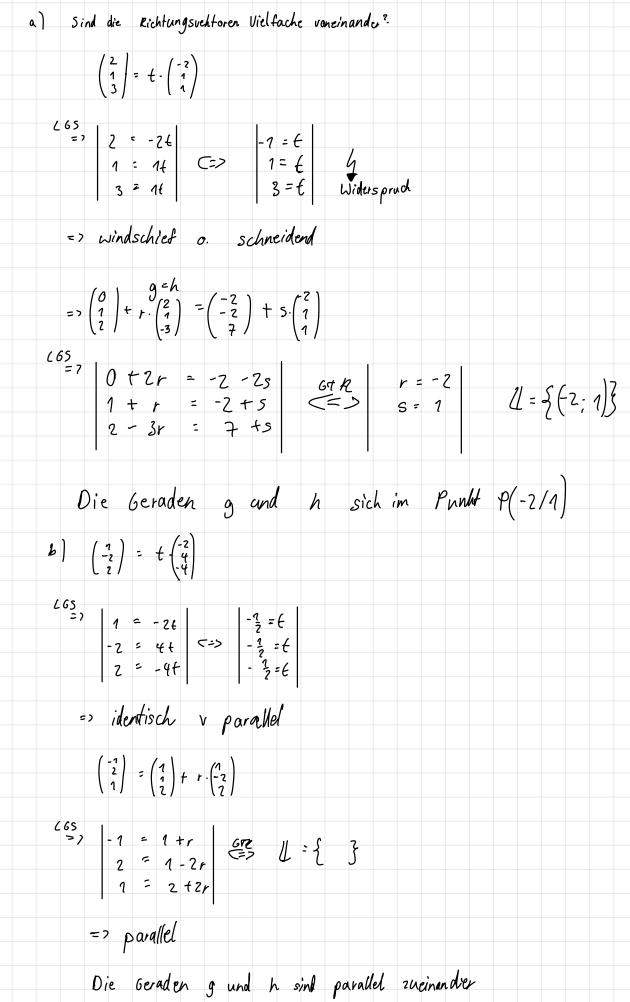 a) Sind die Richtungsvektoren Vielfache voneinander?
(2 1 3) = t · (-2 1 1)
LGS => | 2 = -2t | <=> | -1 = t |
| 1 = 1t | | 1 = t |
| 3 = 1t | | 3 = t | ↯ Widerspruch
=> windschief o. schneidend
g=h
=> (0 1 2) + r · (2 1 -3) = (-2 -2 7) + s · (-2 1 1)
LGS => | 0 + 2r = -2 - 2s | GTR <=> | r = -2 |
| 1 + r = -2 + s | | s = 1 | 𝕃 = {(-2; 1)}
| 2 - 3r = 7 + s |
Die Geraden g und h sich im Punkt P(-2/1)
b) (1 -2 2) = t (-2 4 -4)
LGS => | 1 = -2t | <=> | -1/2 = t |
| -2 = 4t | | -1/2 = t |
| 2 = -4t | | -1/2 = t |
=> identisch v parallel
(-1 2 1) = (1 1 2) + r · (1 -2 2)
LGS => | -1 = 1 + r | GTR <=> 𝕃 = { }
| 2 = 1 - 2r |
| 1 = 2 + 2r |
=> parallel
Die Geraden g und h sind parallel zueinander